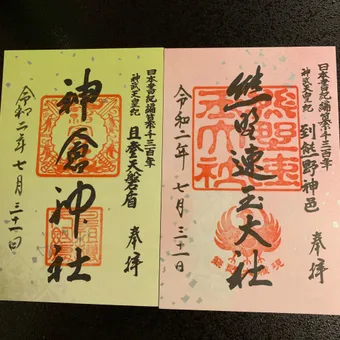 日本書紀編纂千三百年
神武天皇紀 到熊野神邑 奉拝
熊野速玉大社
令和二年 七月 三十一日
日本書紀編纂千三百年
神武天皇紀 且登天磐盾 奉拝
神倉神社
令和二年 七月 三十一日